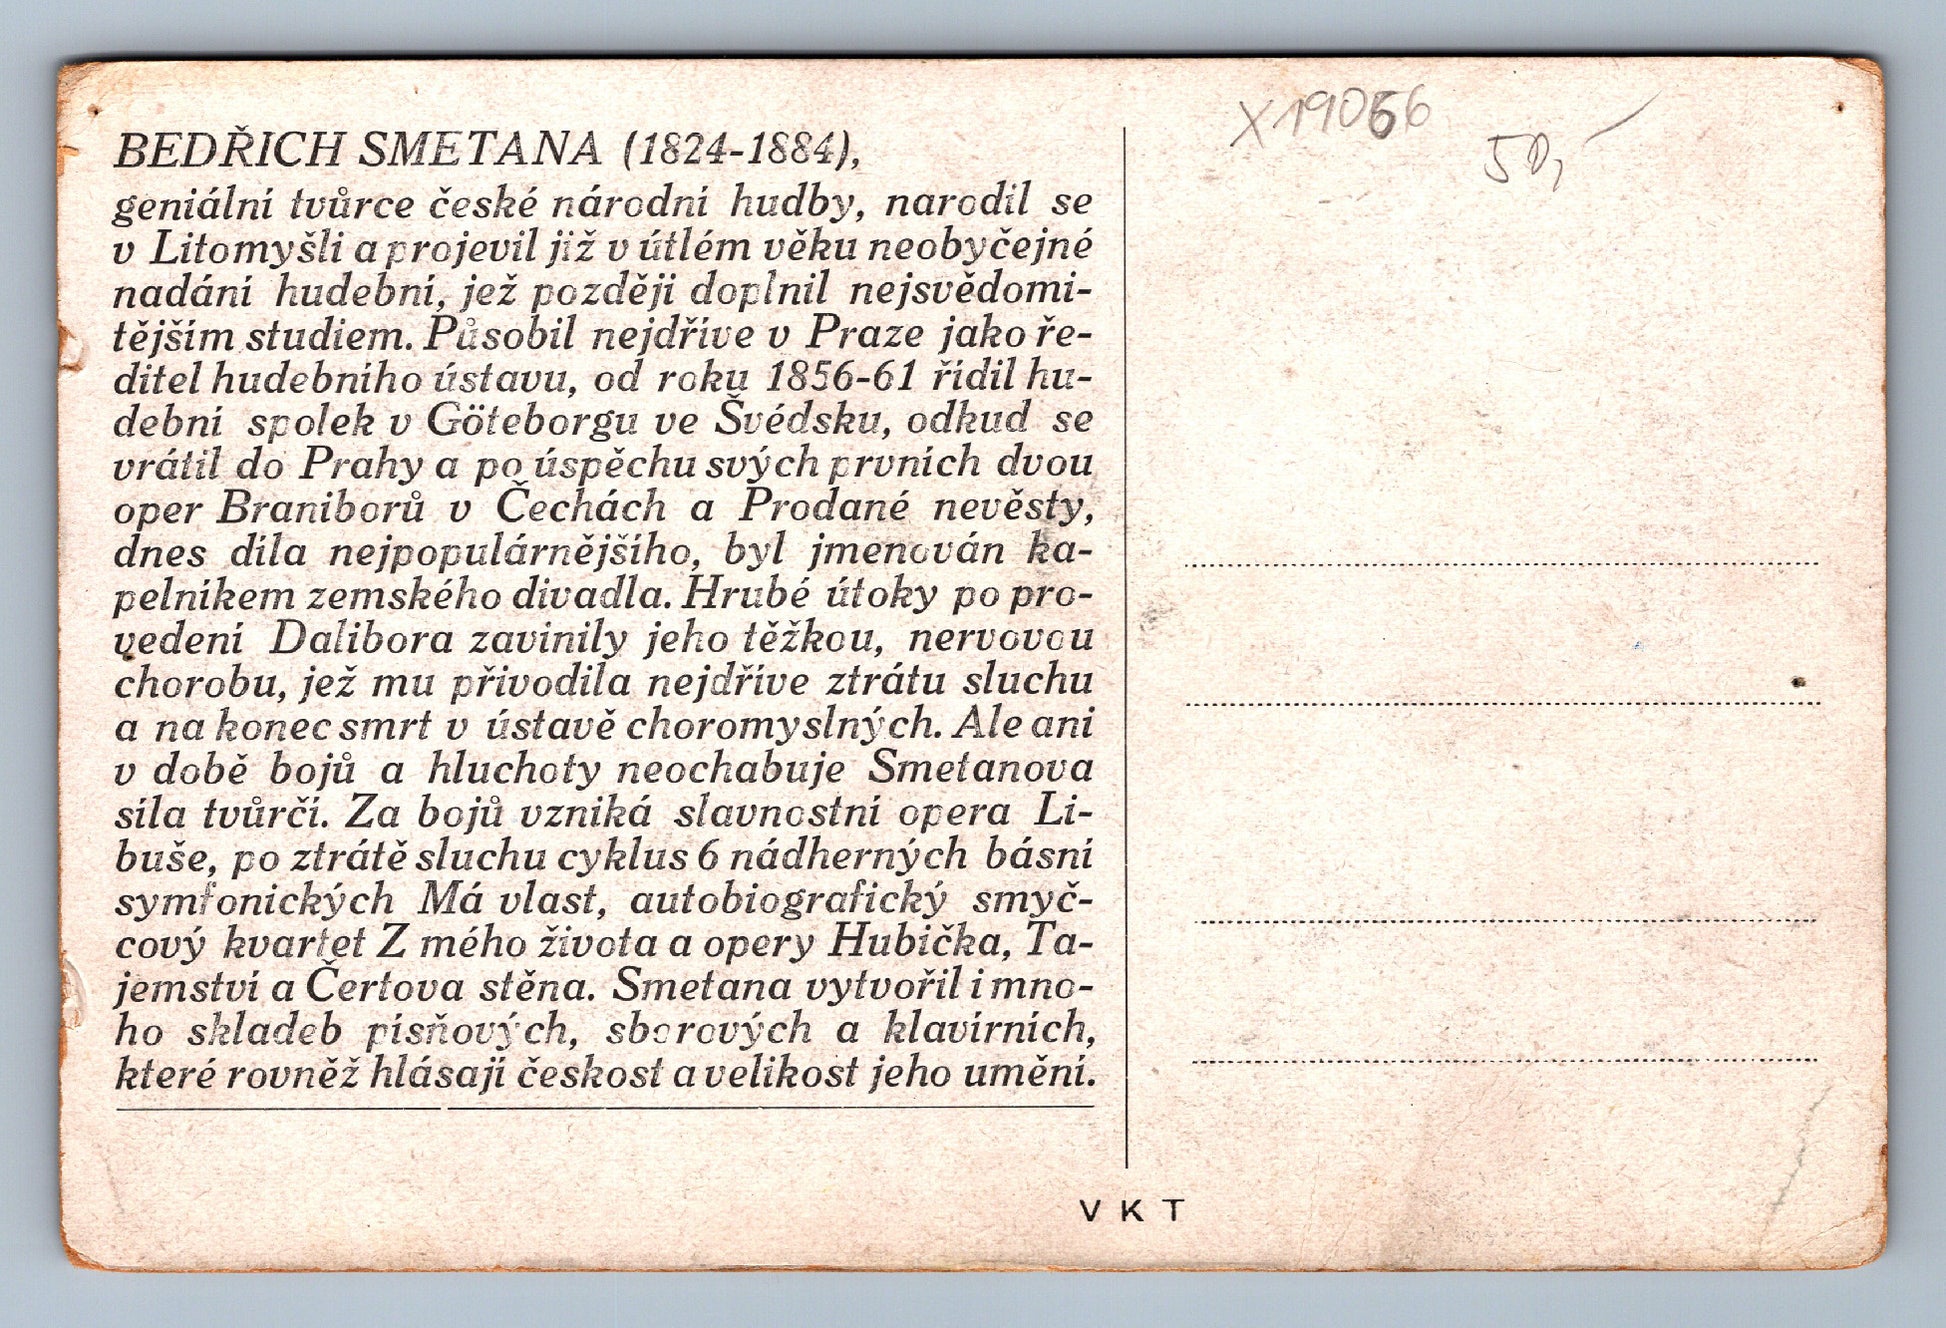 BEDŘICH SMETANA (1824-1884),
geniální tvůrce české národní hudby, narodil se
v Litomyšli a projevil již v útlém věku neobyčejné
nadání hudební, jež později doplnil nejsvědomi-
tějším studiem. Působil nejdříve v Praze jako ře-
ditel hudebního ústavu, od roku 1856-61 řídil hu-
dební spolek v Göteborgu ve Švédsku, odkud se
vrátil do Prahy a po úspěchu svých prvních dvou
oper Braniborů v Čechách a Prodané nevěsty,
dnes díla nejpopulárnějšího, byl jmenován ka-
pelníkem zemského divadla. Hrubé útoky po pro-
vedení Dalibora zavinily jeho těžkou, nervovou
chorobu, jež mu přivodila nejdříve ztrátu sluchu
a na konec smrt v ústavě choromyslných. Ale ani
v době bojů a hluchoty neochabuje Smetanova
síla tvůrčí. Za bojů vzniká slavnostní opera Li-
buše, po ztrátě sluchu cyklus 6 nádherných básní
symfonických Má vlast, autobiografický smyč-
cový kvartet Z mého života a opery Hubička, Ta-
jemství a Čertova stěna. Smetana vytvořil i mno-
ho skladeb písňových, sborových a klavírních,
které rovněž hlásají českost a velikost jeho umění.
X19066
50,-
VKT